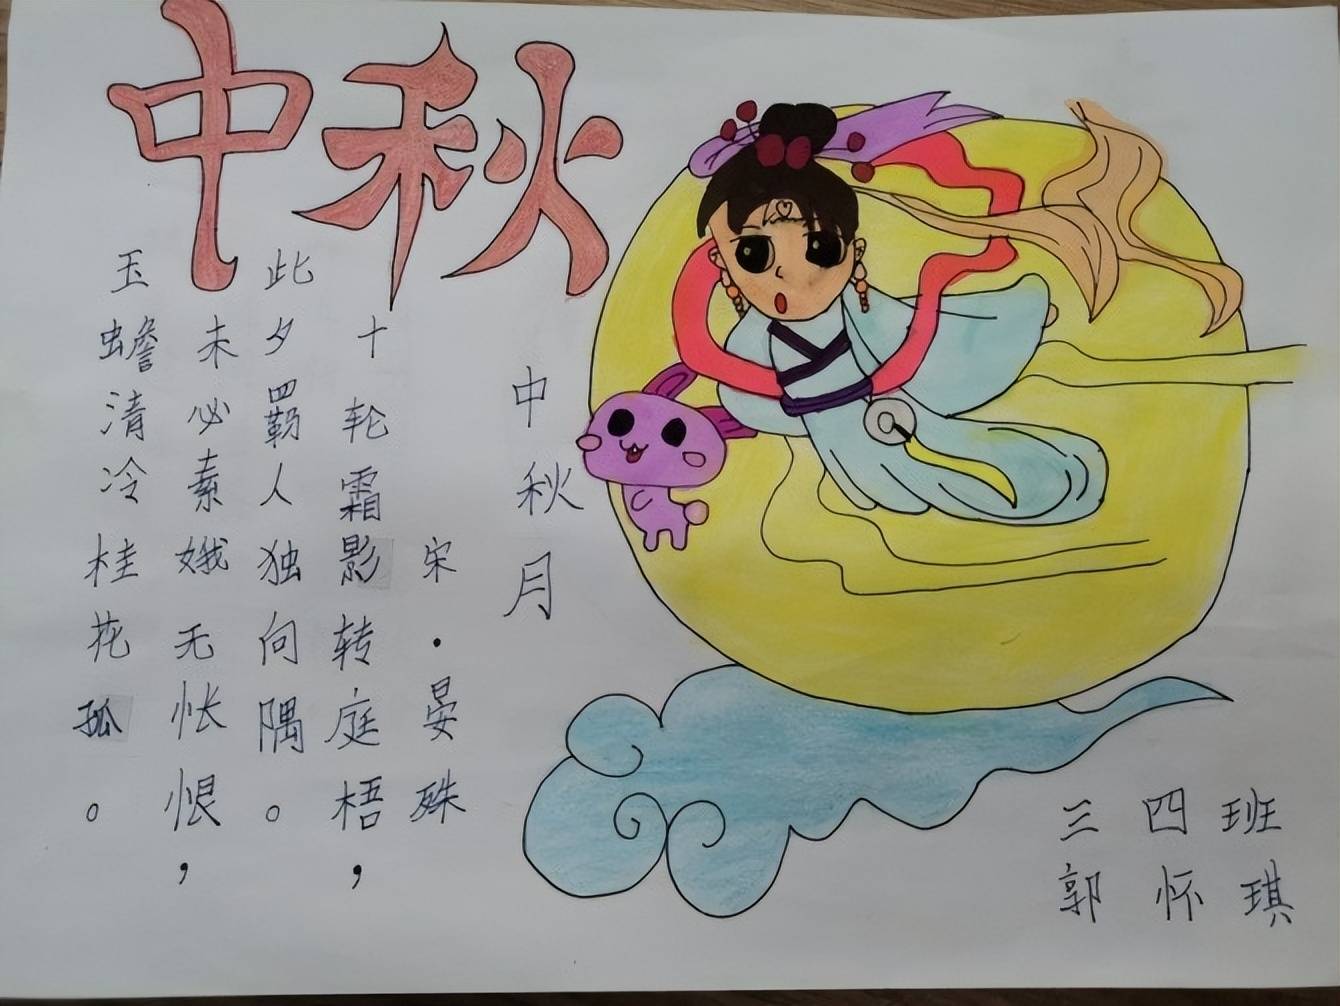 中秋
中秋月
宋·晏殊
十轮霜影转庭梧，
此夕羁人独向隅。
未必素娥无怅恨，
玉蟾清冷桂花孤。
三四班
郭怀琪